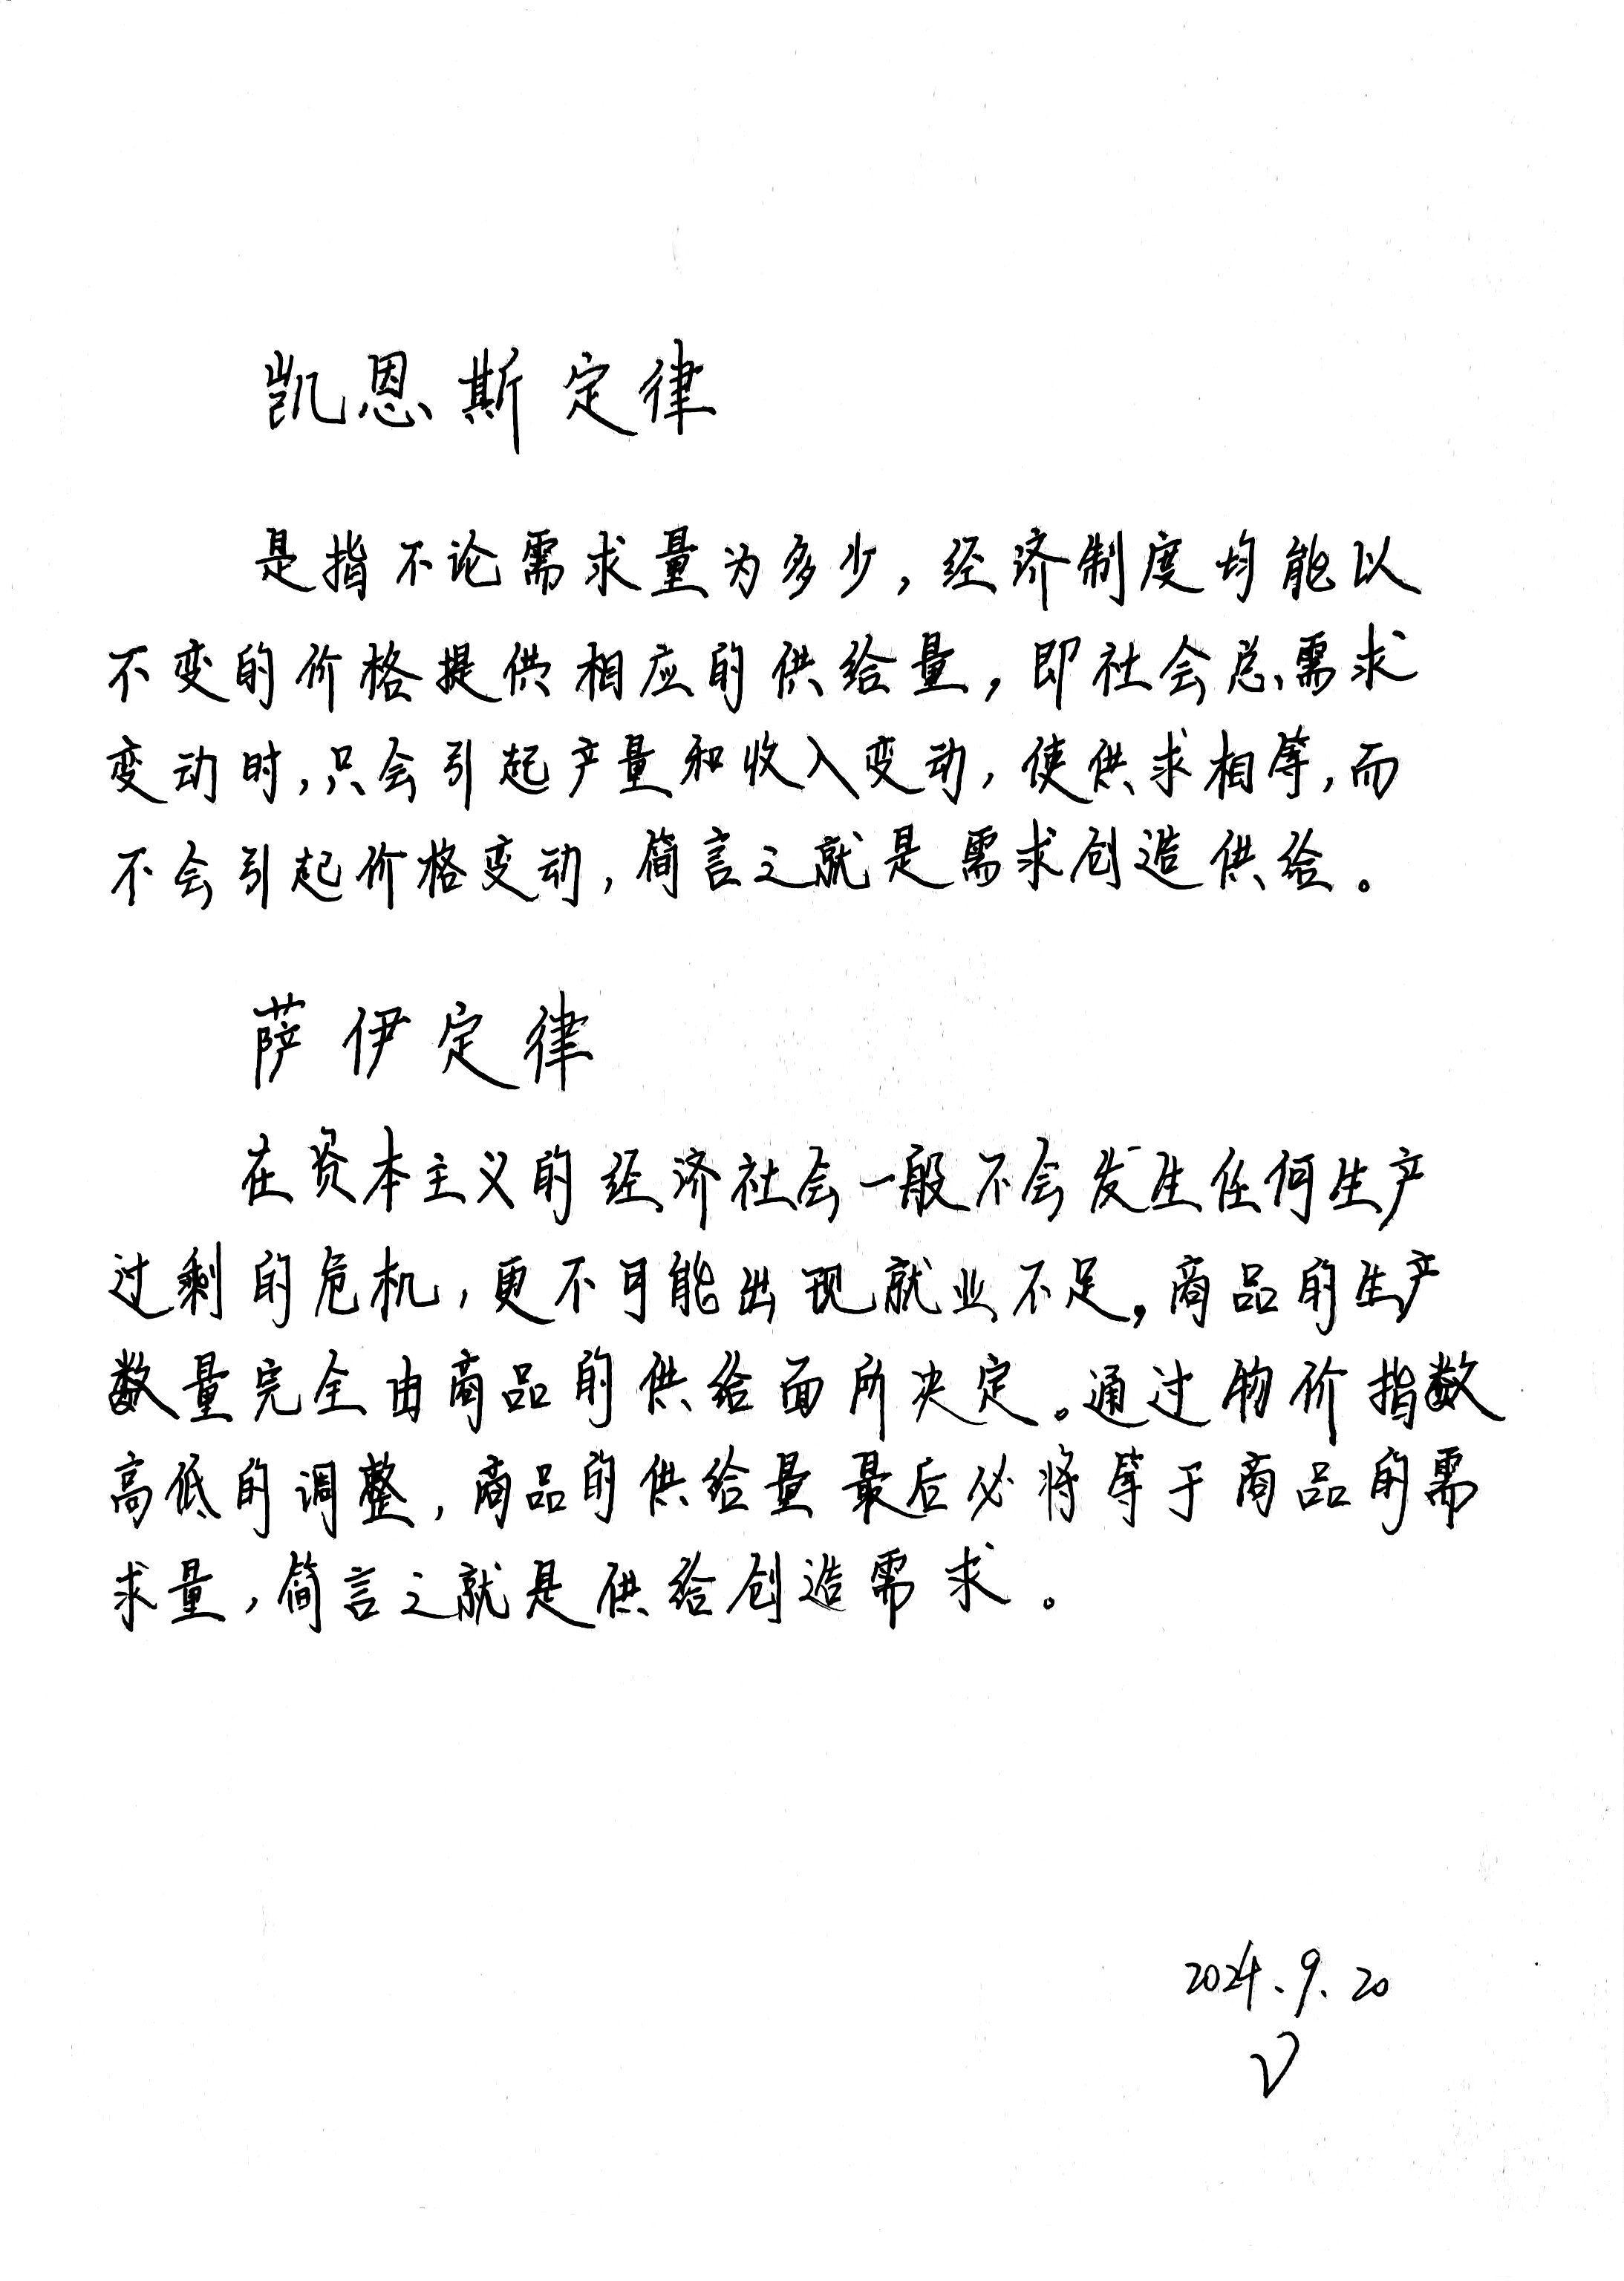 凯恩斯定律
是指不论需求量为多少,经济制度均能以
不变的价格提供相应的供给量,即社会总需求
变动时,只会引起产量和收入变动,使供求相等,而
不会引起价格变动,简言之就是需求创造供给。
萨伊定律
在资本主义的经济社会一般不会发生任何生产
过剩的危机,更不可能出现就业不足。商品的生产
数量完全由商品的供给面所决定。通过物价指数
高低的调整,商品的供给量最后必将等于商品的需
求量,简言之就是供给创造需求。
2024.9.20
V